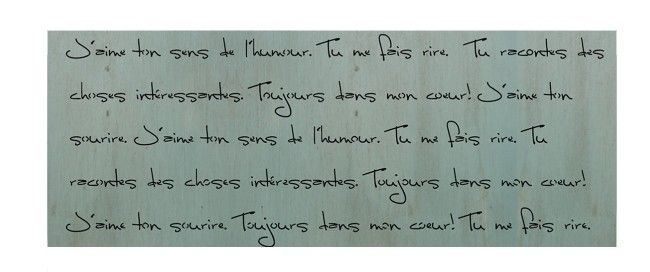 J'aime ton sens de l'humour. Tu me fais rire. Tu racontes des
choses intéressantes. Toujours dans mon coeur! J'aime ton
sourire. J'aime ton sens de l'humour. Tu me fais rire. Tu
racontes des choses intéressantes. Toujours dans mon coeur!
J'aime ton sourire. Toujours dans mon coeur! Tu me fais rire.